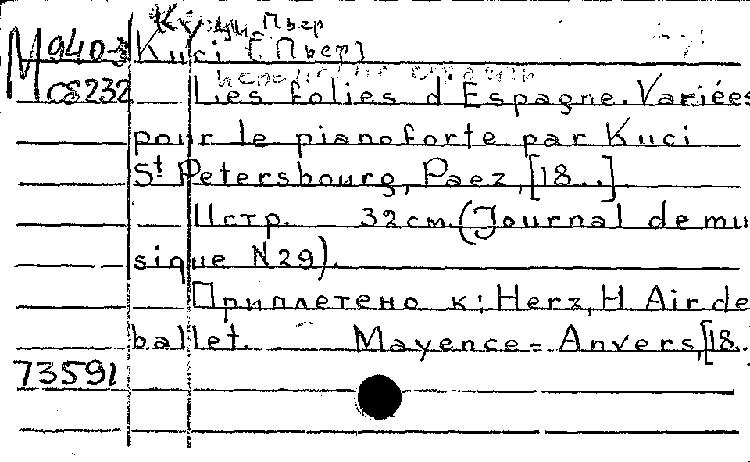 Куци, Пьер
М 940-3 Kuci (Пьер)
C8232 Les folies d'Espagne. Variées
pour le pianoforte par Kuci
St Petersbourg, Paez, [18..]
11стр. 32см. (Journal de mu
sique N29).
Приплетено к: Herz, H Air de
ballet. Mayence = Anvers, [18.
73591